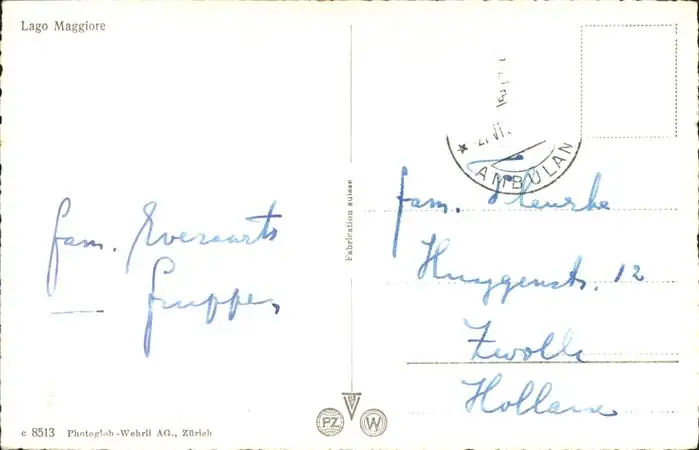 Lago Maggiore
fam. Everaarts
Gruppe,
Fabrication suisse
* 2.VI.
AMBULAN
fam. Fleurke
Huygenstr. 12
Zwolle
Holland
c 8513 Photoglob-Wehrli AG., Zürich
PZ W